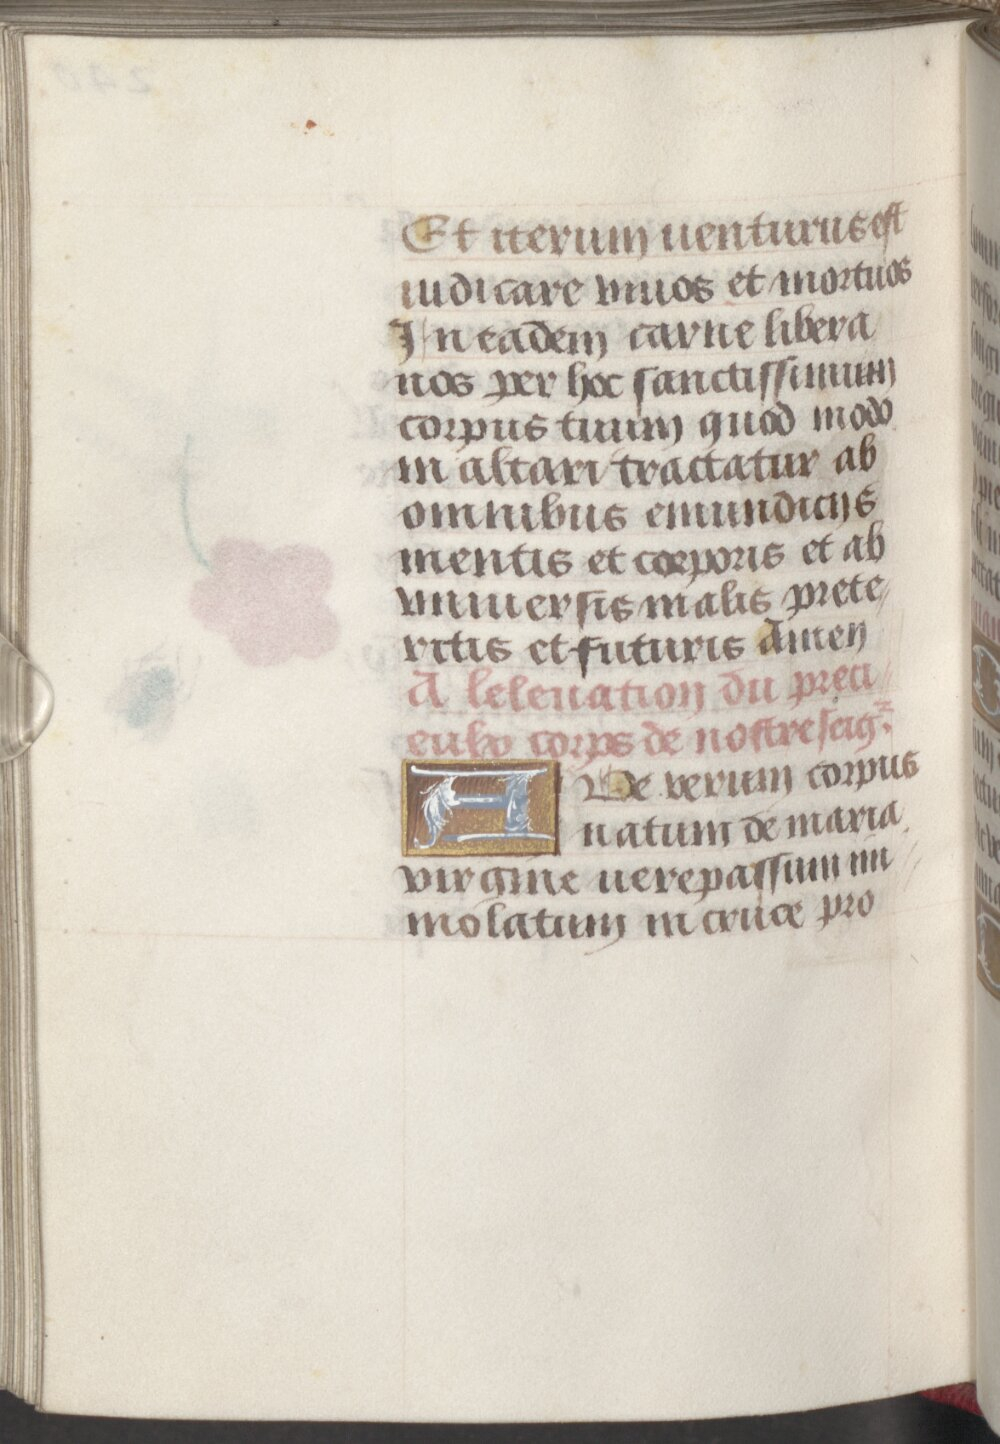 Et iterum uenturus est
iudicare viuos et mortuos
In eadem carne libera
nos per hoc sanctissimum
corpus tuum quod modo
in altari tractatur ab
omnibus emundicijs
mentis et corporis et ab
vniuersis malis prete
ritis et futuris Amen
A leleuation du preci
eulx corps de nostre seigr
AVe verum corpus
natum de maria
virgine uere passum im
molatum in cruce pro